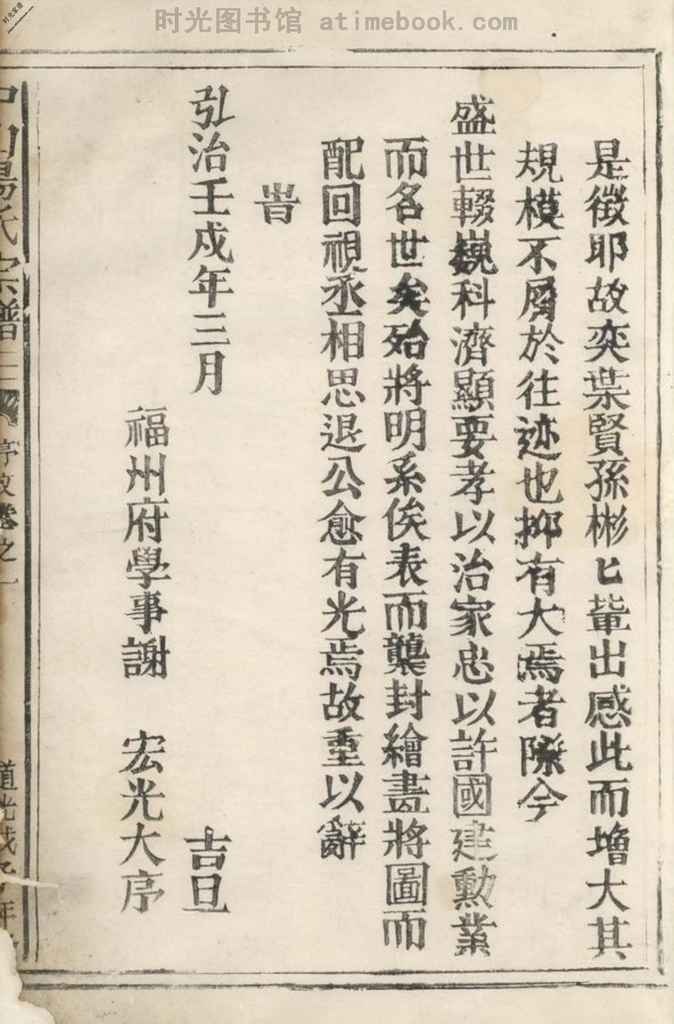 时光图书馆 atimebook.com
是徵耶故奕葉賢孫彬匕輩出感此而增大其
規模不屑於往迹也抑有大焉者際今
盛世輟巍科濟顯要孝以治家忠以許國建勳業
而名世矣殆將明系俟表而襲封繪畫將圖而
配回視丞相思退公愈有光焉故重以辭
旹
弘治壬戍年三月 吉旦
福州府學事謝 宏光大序
湯氏宗譜 序文卷之一 道光戊子年